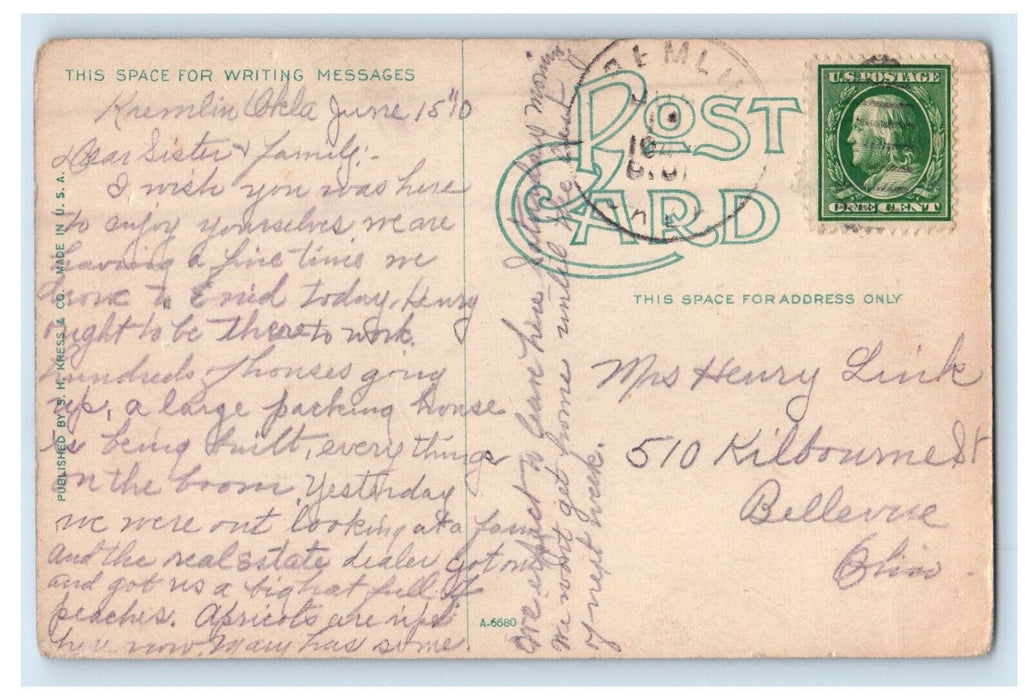 THIS SPACE FOR WRITING MESSAGES
Kremlin Okla June 15"10
Dear Sister & family:-
I wish you was here
to enjoy yourselves we are
having a fine time we
drove to Enid today, Henry
ought to be there to work.
hundreds of houses going
up, a large packing house
is being built, everything
on the boom. Yesterday
we were out looking at a farm
and the real estate dealer got out
and got us a big hat full of
peaches. Apricots are ripe
here now. Mary has some.
We expect to leave here Saturday morning
We wont get home until the
of next week.
PUBLISHED BY S. H. KRESS & CO. MADE IN U. S. A.
A-5680
POST
CARD
U.S. POSTAGE
ONE CENT
THIS SPACE FOR ADDRESS ONLY
Mrs Henry Link
510 Kilbourne St
Bellevue
Ohio.